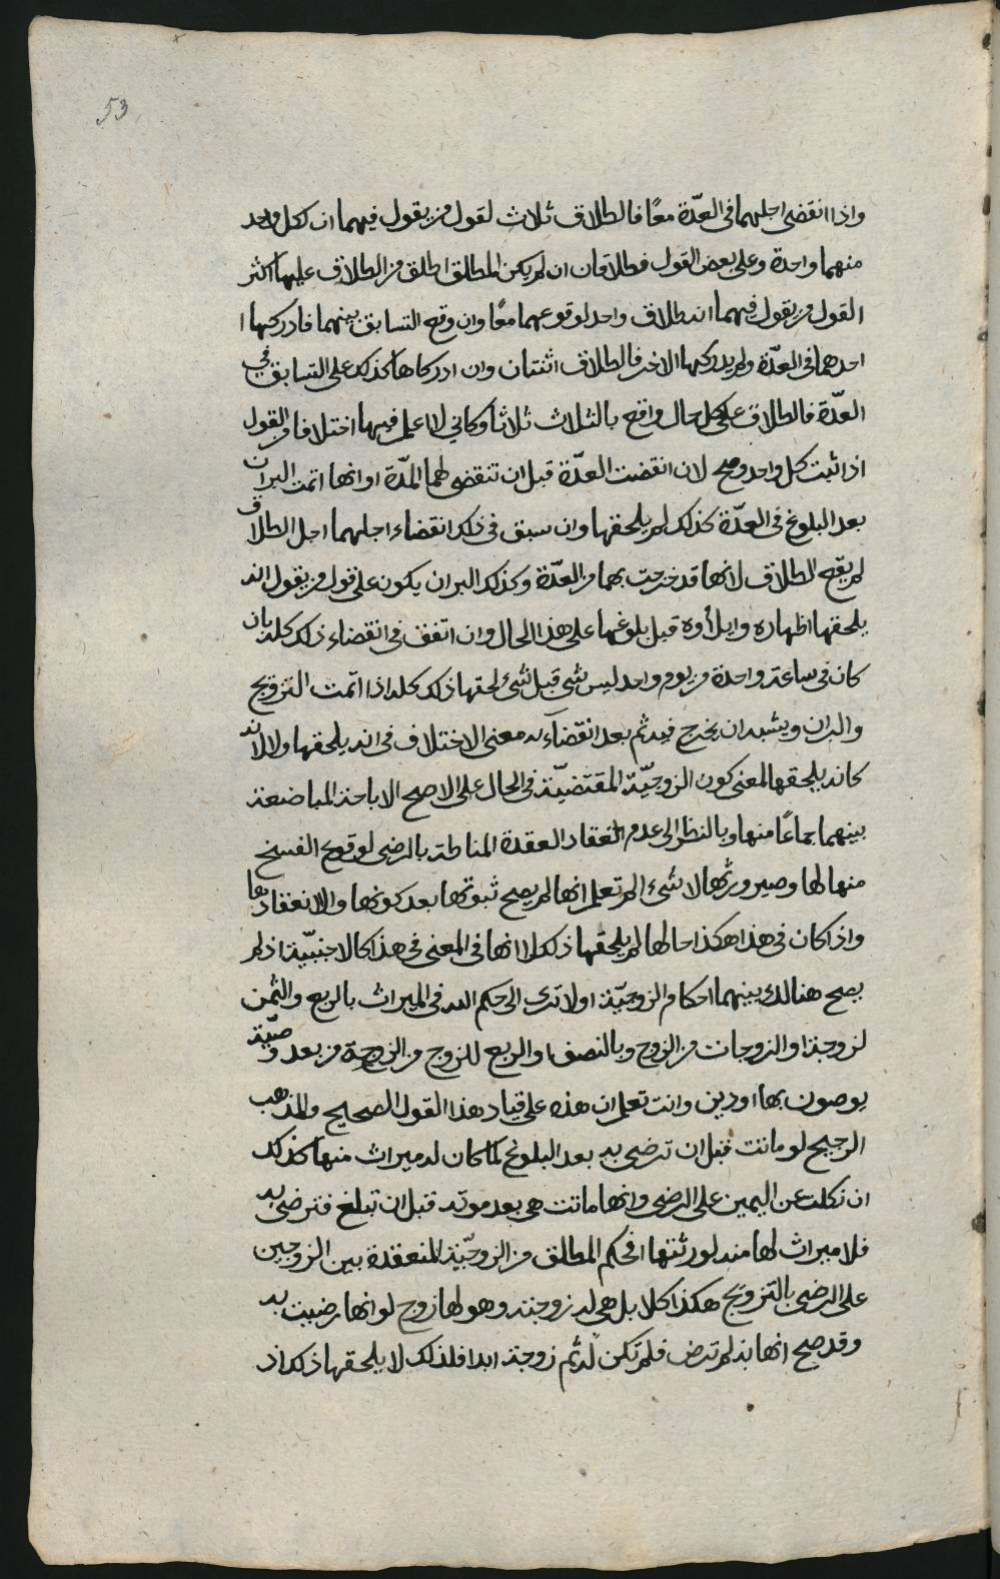 53
واذا انقضى اجلهما فى العدّة معًا فالطلاق ثلاث لقول من يقول فيهما ان لكل واحد
منهما واحدة وعلى بعض القول فطلاقان ان لم يكن المطلق اطلق من الطلاق عليها اكثر
القول من يقول فيهما انه طلاق واحد لوقوعهما معًا وان وقع التسابق بينهما فادركها ا
احدهما فى العدّة ولم يدركها الاخر فالطلاق اثنتان وان ادركاها كذلك على التسابق في
العدّة فالطلاق على كل حال واقع بالثلاث ثلاثا وكاني لا اعلم فيها اختلافا والقول
اذا ثبت كل واحد وصح لان انقضت العدّة قبل ان تنقضى لهما المدّة او انها اتمت البران
بعد البلوغ فى العدّة كذلك لم يلحقها وان سبق فى ذلك انقضاء اجلهما اجل الطلاق
لم يقع الطلاق لانها قد خرجت بهما من العدّة وكذلك البران يكون على قول من يقول انه
يلحقها اظهاره وايلأوه قبل بلوغها على هذا الحال وان اتفق فى انقضاء ذلك كله بان
كان فى ساعة واحدة من يوم واحد ليس شى قبل شئ لحقها ذلك كله اذا اتمت التزويج
والبران ويشبه ان يخرج فيه ثم بعد انقضآءه معنى الاختلاف فى انه يلحقها ولا لانه
كانه يلحقها لمعنى كون الزوجيّة المقتضيّة فى الحال على الاصح الاباحة المباضعة
بينهما جماعًا منها وبالنظر الى عدم انعقاد العقدة المناطة بالرضى لوقوع الفسخ
منها لها وصيرورتها لا شئ الم تعلم انها لم يصح ثبوتها بعد كونها والا انعقادها
واذا كان فى هذا هكذا حالها لم يلحقها ذلك لا انها فى المعنى فى هذا كالاجنبيّة اذ لم
يصح هنالك بينهما احكام الزوجيّة اولا ترى الى حكم الله فى الميراث بالربع والثمن
لزوجة او الزوجات من الزوج وبالنصف او الربع للزوج من الزوجة من بعد وصيّة
يوصون بها او دين وانت تعلم ان هذه على قياد هذا القول الصحيح والمذهب
الرجيح لو ماتت قبل ان ترضى به بعد البلوغ لما كان له ميراث منها كذلك
ان نكلت عن اليمين على الرضى وانها ماتت هى بعد موته قبل ان تبلغ فترضى به
فلا ميراث لها منه لورثتها افحكم المطلق من الزوجيّة المنعقدة بين الزوجين
على الرضى بالتزويج هكذا كلا بل هى له زوجته وهو لها زوج لو انها رضيت به
وقد صح انها به لم ترض فلم تكن له ثم زوجة ابدا فلذلك لا يلحقها ذلك اذ